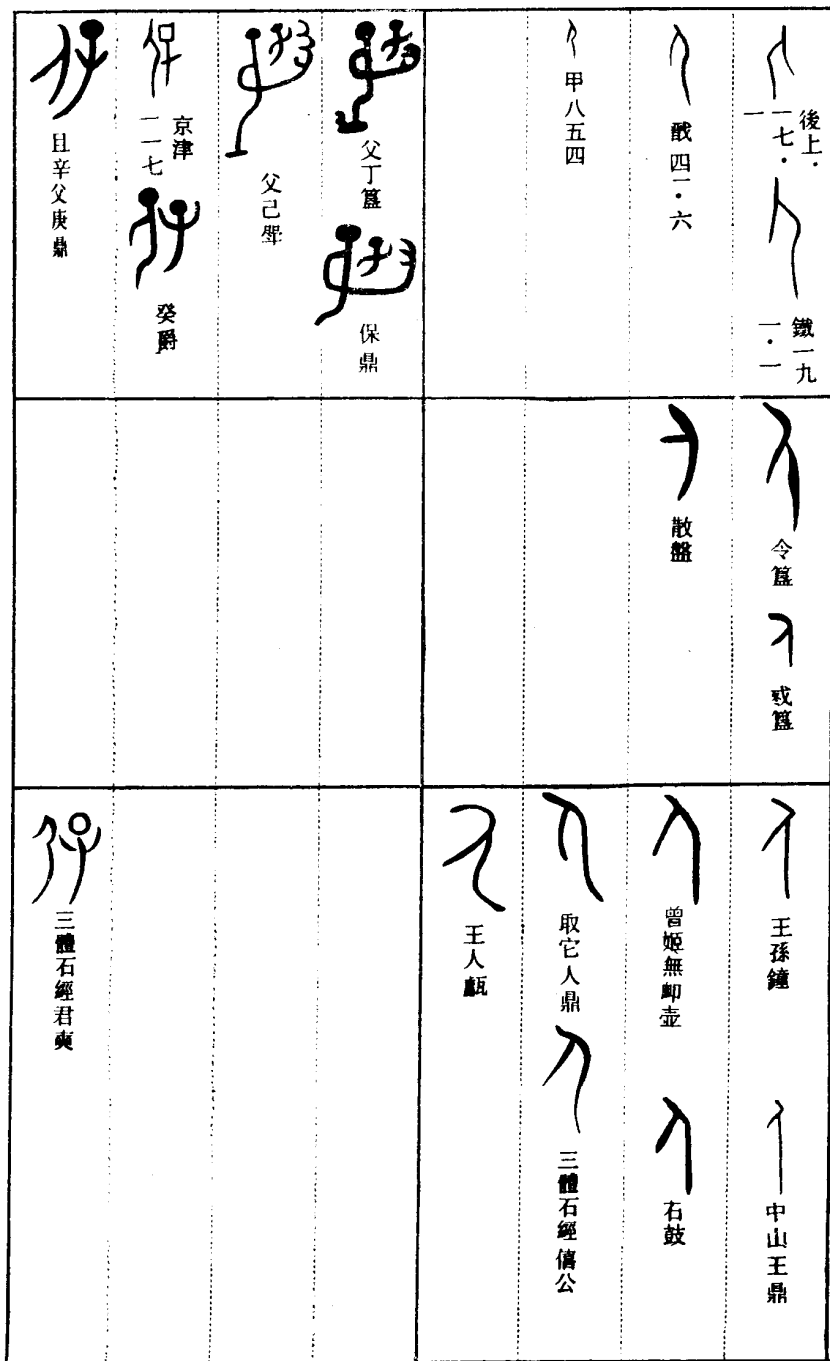 後上・
一七・
一
鐵一九
一・一
戩四二・六
甲八五四
父丁簋
保鼎
父己觶
京津
一一七
癸爵
且辛父庚鼎
令簋
簋
散盤
王孫鐘
中山王鼎
曾姬無卹壺
石鼓
取它人鼎
三體石經僖公
王人甗
三體石經君奭